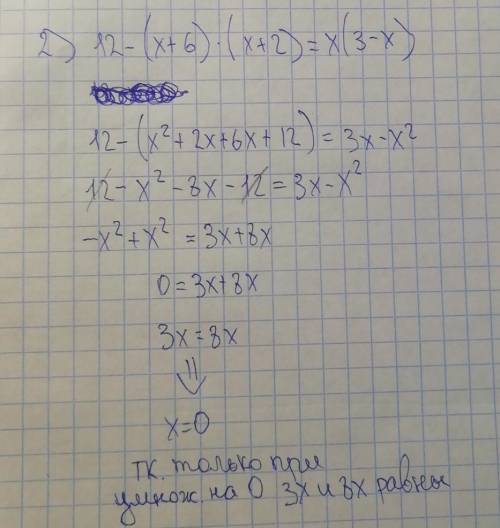 2) 12-(x+6)·(x+2)=x(3-x)
12-(x²+2x+6x+12)=3x-x²
12-x²-8x-12=3x-x²
-x²+x²=3x+8x
0=3x+8x
3x=8x
⇓
x=0
тк. только при
умнож. на 0 3x и 8x равны